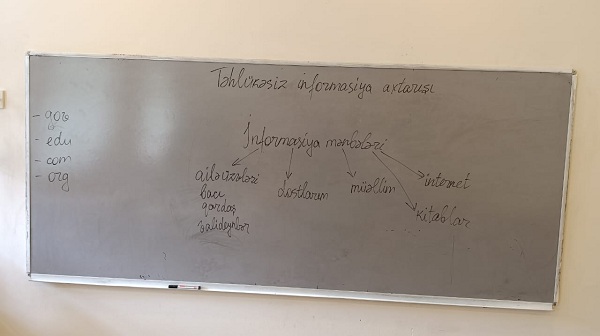 Təhlükəsiz informasiya axtarışı
- gov
- edu
- com
- org
İnformasiya mənbələri
ailə üzvləri
bacı
qardaş
valideynlər
dostlarım
müəllim
internet
kitablar